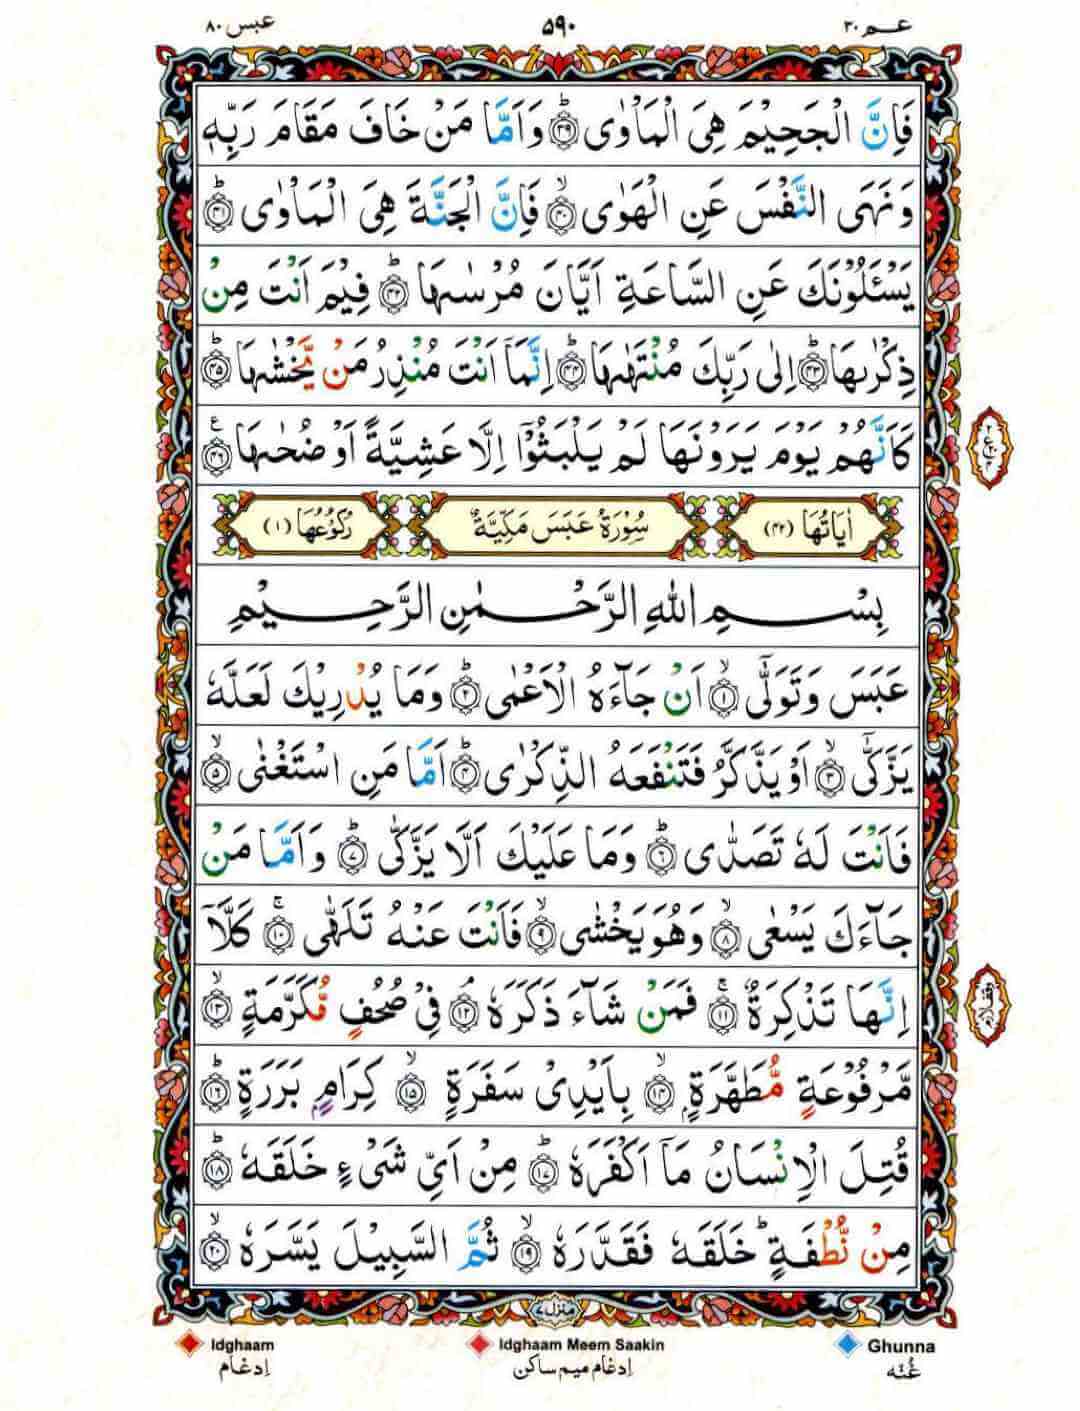 عبس ٨٠ ۵۹۰ عـم ٣٠
فَاِنَّ الْجَحِيْمَ هِىَ الْمَاْوٰى ؕ‏﴿۳۹﴾ وَاَمَّا مَنْ خَافَ مَقَامَ رَبِّهٖ
وَ نَهَى النَّفْسَ عَنِ الْهَوٰى ۙ‏﴿۴۰﴾ فَاِنَّ الْجَنَّةَ هِىَ الْمَاْوٰى ؕ‏﴿۴۱﴾
يَسْـَٔلُوْنَكَ عَنِ السَّاعَةِ اَيَّانَ مُرْسٰٮهَا ؕ‏﴿۴۲﴾ فِيْمَ اَنْتَ مِنْ
ذِكْرٰٮهَا ؕ‏﴿۴۳﴾ اِلٰى رَبِّكَ مُنْتَهٰٮهَا ؕ‏﴿۴۴﴾ اِنَّمَاۤ اَنْتَ مُنْذِرُ مَنْ يَّخْشٰٮهَا ؕ‏﴿۴۵﴾
كَاَنَّهُمْ يَوْمَ يَرَوْنَهَا لَمْ يَلْبَثُوْۤا اِلَّا عَشِيَّةً اَوْ ضُحٰٮهَا ‏﴿۴۶﴾
اٰيَاتُهَا (۴۲) سُوْرَةُ عَبَسَ مَكِّيَّةٌ رُكُوْعُهَا (۱)
بِسْمِ اللهِ الرَّحْمٰنِ الرَّحِيْمِ
عَبَسَ وَتَوَلّٰٓى ۙ‏﴿۱﴾ اَنْ جَآءَهُ الْاَعْمٰى ؕ‏﴿۲﴾ وَمَا يُدْرِيْكَ لَعَلَّهٗ
يَزَّكّٰٓى ۙ‏﴿۳﴾ اَوْ يَذَّكَّرُ فَتَنْفَعَهُ الذِّكْرٰى ؕ‏﴿۴﴾ اَمَّا مَنِ اسْتَغْنٰى ۙ‏﴿۵﴾
فَاَنْتَ لَهٗ تَصَدّٰى ؕ‏﴿۶﴾ وَمَا عَلَيْكَ اَلَّا يَزَّكّٰى ؕ‏﴿۷﴾ وَاَمَّا مَنْ
جَآءَكَ يَسْعٰى ۙ‏﴿۸﴾ وَهُوَ يَخْشٰى ۙ‏﴿۹﴾ فَاَنْتَ عَنْهُ تَلَهّٰى ۚ‏﴿۱۰﴾ كَلَّاۤ
اِنَّهَا تَذْكِرَةٌ ۚ‏﴿۱۱﴾ فَمَنْ شَآءَ ذَكَرَهٗ ۘ‏﴿۱۲﴾ فِىْ صُحُفٍ مُّكَرَّمَةٍ ۙ‏﴿۱۳﴾
مَّرْفُوْعَةٍ مُّطَهَّرَةٍ ۙ‏﴿۱۴﴾ بِاَيْدِىْ سَفَرَةٍ ۙ‏﴿۱۵﴾ كِرَامٍ بَرَرَةٍ ؕ‏﴿۱۶﴾
قُتِلَ الْاِنْسَانُ مَاۤ اَكْفَرَهٗ ؕ‏﴿۱۷﴾ مِنْ اَىِّ شَىْءٍ خَلَقَهٗ ؕ‏﴿۱۸﴾
مِنْ نُّطْفَةٍ ؕ خَلَقَهٗ فَقَدَّرَهٗ ۙ‏﴿۱۹﴾ ثُمَّ السَّبِيْلَ يَسَّرَهٗ ۙ‏﴿۲۰﴾
منزل ٧
Idghaam Idghaam Meem Saakin Ghunna
اِدغام اِدغام میم ساکن غُنّه